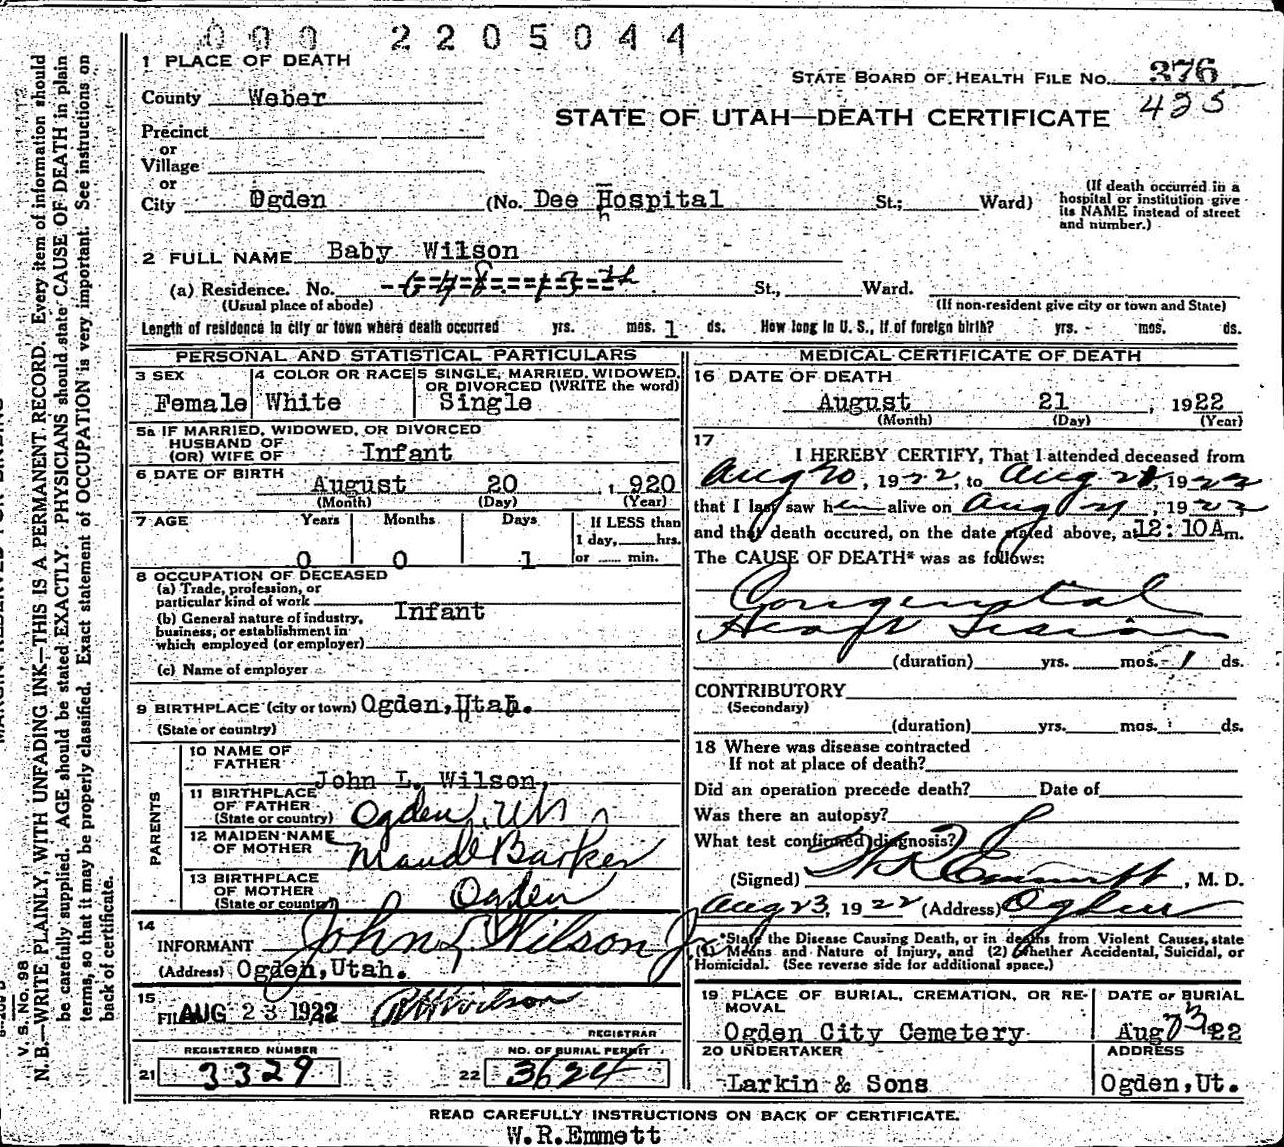 000 2205044
1 PLACE OF DEATH
STATE BOARD OF HEALTH FILE NO. 376
425
County Weber
STATE OF UTAH—DEATH CERTIFICATE
Precinct
or
Village
or
City Ogden (No. Dee Hospital St.; Ward)
(If death occurred in a
hospital or institution give
its NAME instead of street
and number.)
2 FULL NAME Baby Wilson
(a) Residence. No. 648 - 13th St., Ward.
(Usual place of abode) (If non-resident give city or town and State)
Length of residence in city or town where death occurred yrs. mos. 1 ds. How long in U. S., if of foreign birth? yrs. mos. ds.
PERSONAL AND STATISTICAL PARTICULARS
3 SEX
Female
4 COLOR OR RACE
White
5 SINGLE, MARRIED, WIDOWED,
OR DIVORCED (WRITE the word)
Single
5a IF MARRIED, WIDOWED, OR DIVORCED
HUSBAND OF
(OR) WIFE OF Infant
6 DATE OF BIRTH
August 20, 1920
(Month) (Day) (Year)
7 AGE Years Months Days If LESS than
1 day, hrs.
0 0 1 or min.
8 OCCUPATION OF DECEASED
(a) Trade, profession, or
particular kind of work Infant
(b) General nature of industry,
business, or establishment in
which employed (or employer)
(c) Name of employer
9 BIRTHPLACE (city or town) Ogden, Utah.
(State or country)
PARENTS
10 NAME OF
FATHER John L. Wilson,
11 BIRTHPLACE
OF FATHER
(State or country) Ogden, Ut
12 MAIDEN NAME
OF MOTHER Maude Barker
13 BIRTHPLACE
OF MOTHER
(State or country) Ogden
14
INFORMANT John L Wilson Jr.
(Address) Ogden, Utah.
15
FILED AUG 23 1922 Wilson
REGISTRAR
REGISTERED NUMBER
21 3329
NO. OF BURIAL PERMIT
22 3624
MEDICAL CERTIFICATE OF DEATH
16 DATE OF DEATH
August 21, 1922
(Month) (Day) (Year)
17
I HEREBY CERTIFY, That I attended deceased from
Aug 20, 1922, to Aug 21, 1922
that I last saw her alive on Aug 21, 1922
and that death occured, on the date stated above, at 12:10 A m.
The CAUSE OF DEATH* was as follows:
Congenital
Heart Lesion
(duration) yrs. mos. 1 ds.
CONTRIBUTORY
(Secondary)
(duration) yrs. mos. ds.
18 Where was disease contracted
If not at place of death?
Did an operation precede death? Date of
Was there an autopsy?
What test confirmed diagnosis?
(Signed) W R Emmett, M. D.
Aug 23, 1922 (Address) Ogden
*State the Disease Causing Death, or in deaths from Violent Causes, state
(1) Means and Nature of Injury, and (2) Whether Accidental, Suicidal, or
Homicidal. (See reverse side for additional space.)
19 PLACE OF BURIAL, CREMATION, OR RE-
MOVAL
Ogden City Cemetery
DATE OF BURIAL
Aug 23 22
20 UNDERTAKER
Larkin & Sons
ADDRESS
Ogden, Ut.
READ CAREFULLY INSTRUCTIONS ON BACK OF CERTIFICATE.
W.R.Emmett
V. S. No. 98
N. B.—WRITE PLAINLY, WITH UNFADING INK—THIS IS A PERMANENT RECORD. Every item of information should
be carefully supplied. AGE should be stated EXACTLY. PHYSICIANS should state CAUSE OF DEATH in plain
terms, so that it may be properly classified. Exact statement of OCCUPATION is very important. See instructions on
back of certificate.